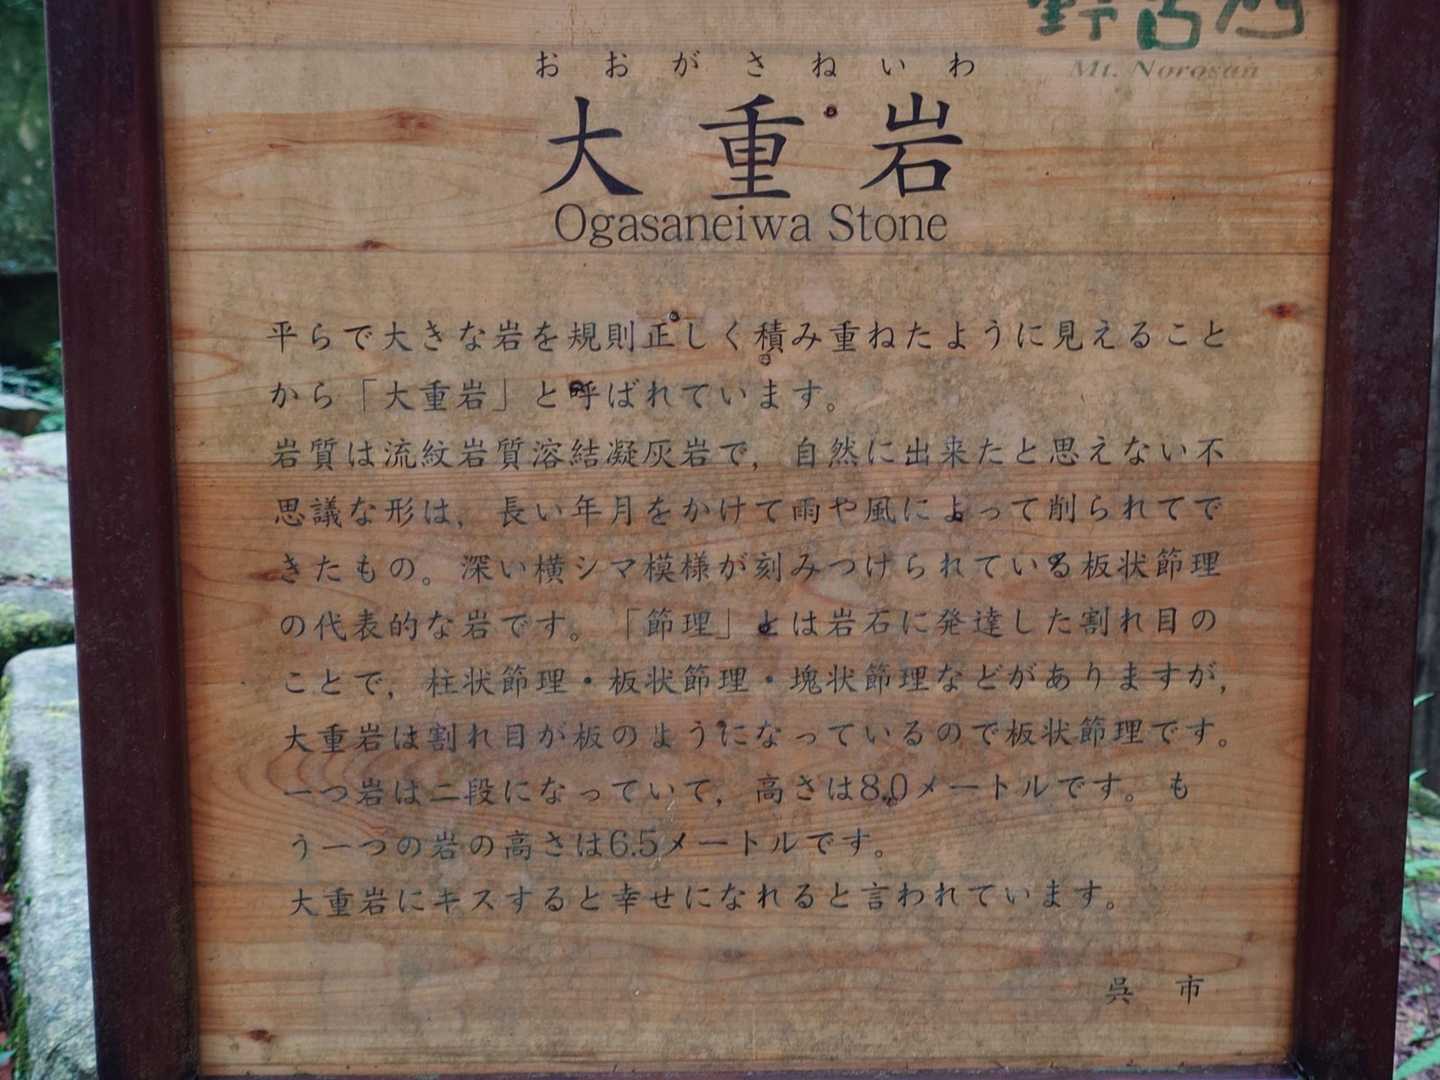 野呂山
Mt. Norosan
おおがさねいわ
大重岩
Ogasaneiwa Stone
平らで大きな岩を規則正しく積み重ねたように見えること
から「大重岩」と呼ばれています。
岩質は流紋岩質溶結凝灰岩で，自然に出来たと思えない不
思議な形は，長い年月をかけて雨や風によって削られてで
きたもの。深い横シマ模様が刻みつけられている板状節理
の代表的な岩です。「節理」とは岩石に発達した割れ目の
ことで，柱状節理・板状節理・塊状節理などがありますが，
大重岩は割れ目が板のようになっているので板状節理です。
一つ岩は二段になっていて，高さは8.0メートルです。も
う一つの岩の高さは6.5メートルです。
大重岩にキスすると幸せになれると言われています。
呉 市